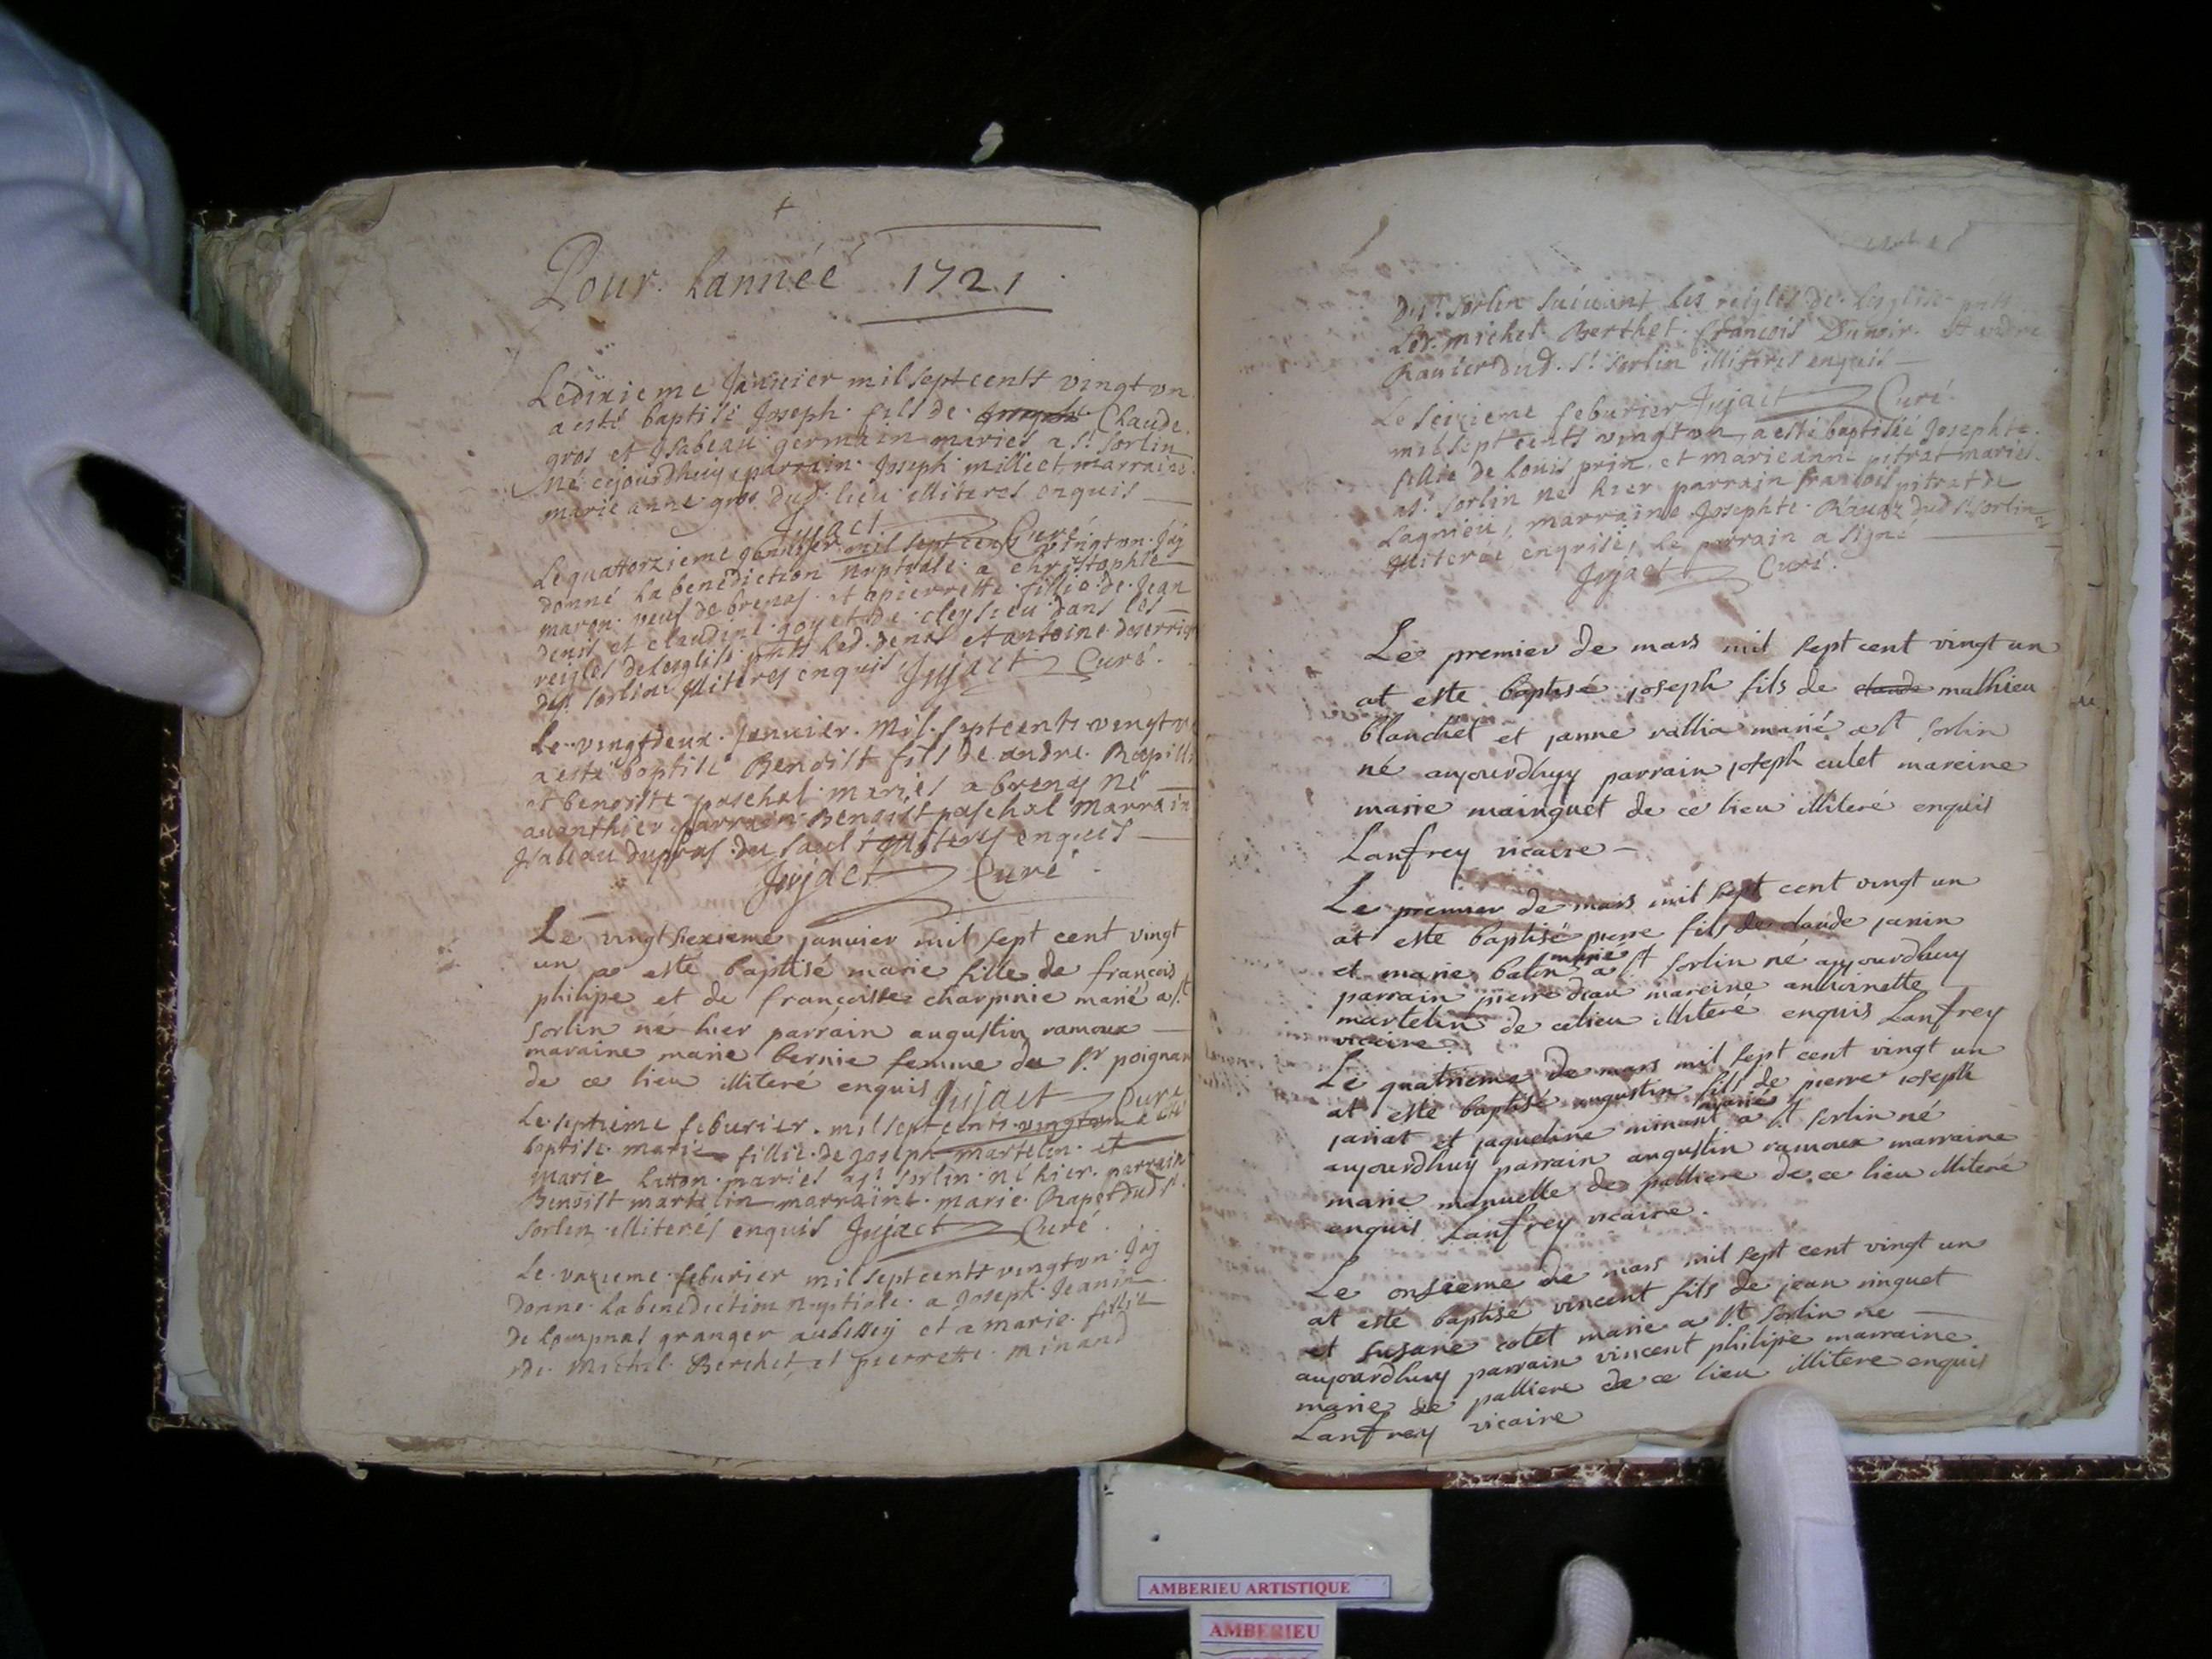 Pour lannéé 1721
Ledixieme Januier mil sept cents vingt vn
a esté baptisé Joseph fils de Joseph Claude
gros et Jsabeau germain mariés a st sorlin
né cejourdhuy parrain Joseph millict marraine
marie anne gros dud lieu illiteres enquis
Jujact Curé
Le quattorzieme Januier mil sept cents vingt vn Jay
donné la benediction nuptiale a christophle
maron veuf de brenas et a pierrette fillie de Jean
denis et claudine goyet de cleysieu dans les
reigles de lesglise ptts led. denis et antoine deserri
dest sorlin illiteres enquis Jujact Curé
Le vingtdeux Januier mil sept cents vingt v
a esté baptisé Benoist fils de andre
et benoiste paschal mariés a brenas né
auanthier parrain Benoist paschal marrain
Jsabeau dupras du sault illiteres enquis
Jujact Curé
Le vingt siexieme januier mil sept cent vingt
un a esté baptisé marie fille de françois
philipe et de françoisse charpinie marié a st
sorlin né hier parrain augustin ramoux
maraine marie bernie femme du sr poignan
de ce lieu illiteré enquis Jujact Curé
Le septieme feburier mil sept cents vingt vn a esté
baptisé marie fillie de Joseph martelin et
marie latton mariés a st sorlin né hier parrain
Benoist martelin marraine marie Rapet dud st
sorlin illiterés enquis Jujact Curé
Le vnzieme feburier mil sept cents vingt vn Jay
donné la benediction nuptiale a Joseph Jeanin
de loupnas granger aubessey et a marie fillie
de Michel Berthet et pierrette minand
dest sorlin suiuant les reigles de lesglise ptts
led. michel Berthet françois Dunoir et andre
Rauier dud. st sorlin illiteres enquis
Jujact Curé
Le seizieme feburier
mil sept cents vingt vn a esté baptisée Josephte
fillie de Louis prin et marieanne pitrat mariés
a st sorlin né hier parrain francois pitrat de
Lagnieu, marraine Josephte Rauaz dud st sorlin
illiterée enquise, le parrain a signé
Jujact Curé
Le premier de mars mil sept cent vingt un
at este baptisé joseph fils de claude mathieu
blanchet et janne vallia marié a st sorlin
né aujourdhuy parrain joseph culet mareine
marie mainguet de ce lieu illiteré enquis
Lanfrey vicaire
Le premier de mars mil sept cent vingt un
at este baptisé pierre fils de claude janin
et marie balon marié a st sorlin né aujourdhuy
parrain pierre dian mareine anthoinette
martelin de celieu illiteré enquis Lanfrey
vicaire
Le quatrieme de mars mil sept cent vingt un
at este baptisé augustin fils de pierre joseph
jariat et jaqueline minant marié a st sorlin né
aujourdhuy parrain augustin ramoux marraine
marie manuelle de palliere de ce lieu illiteré
enquis Lanfrey vicaire.
Le onsieme de mars mil sept cent vingt un
at esté baptisé vincent fils de jean ringuet
et susane colet marie a st sorlin ne
aujourdhuy parrain vincent philipe marraine
marie de palliere de ce lieu illitere enquis
Lanfrey vicaire
AMBERIEU ARTISTIQUE
AMBERIEU